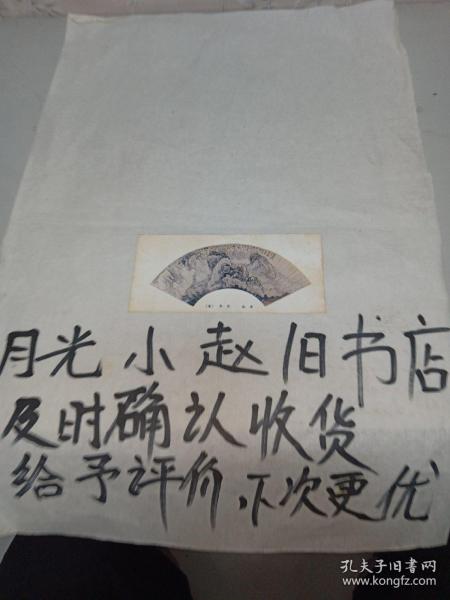 月光小赵旧书店
及时确认收货
给予评价下次更优
孔夫子旧书网
www.kongfz.com